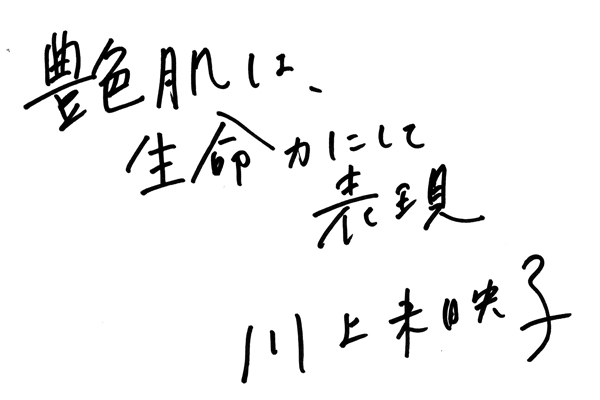 艶肌は、
生命力にして
表現
川上未映子